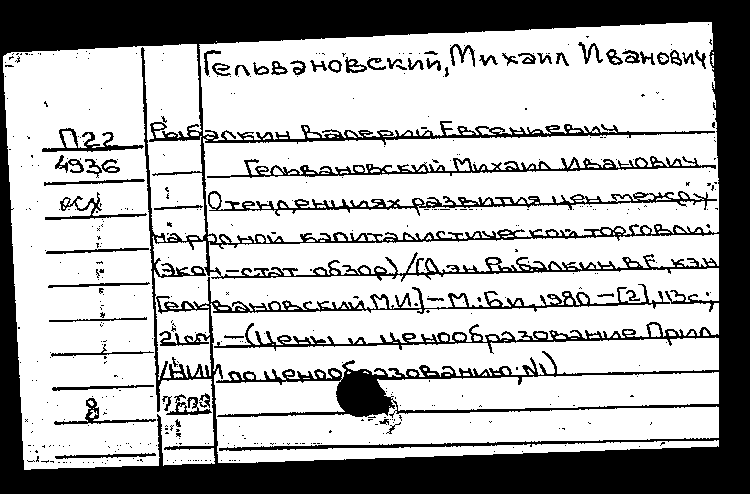 Гельвановский, Михаил Иванович
П22 Рыбалкин Валерий Евгеньевич,
4936 Гельвановский, Михаил Иванович
осх О тенденциях развития цен между
народной капиталистической торговли:
(экон.-стат обзор)/[Д.эн Рыбалкин, В.Е, к.эн
Гельвановский, М.И.]-М.:Б.и, 1980-[2], 113с;
21 см.-(Цены и ценообразование. Прил.
/НИИ по ценообразованию; №1)
8